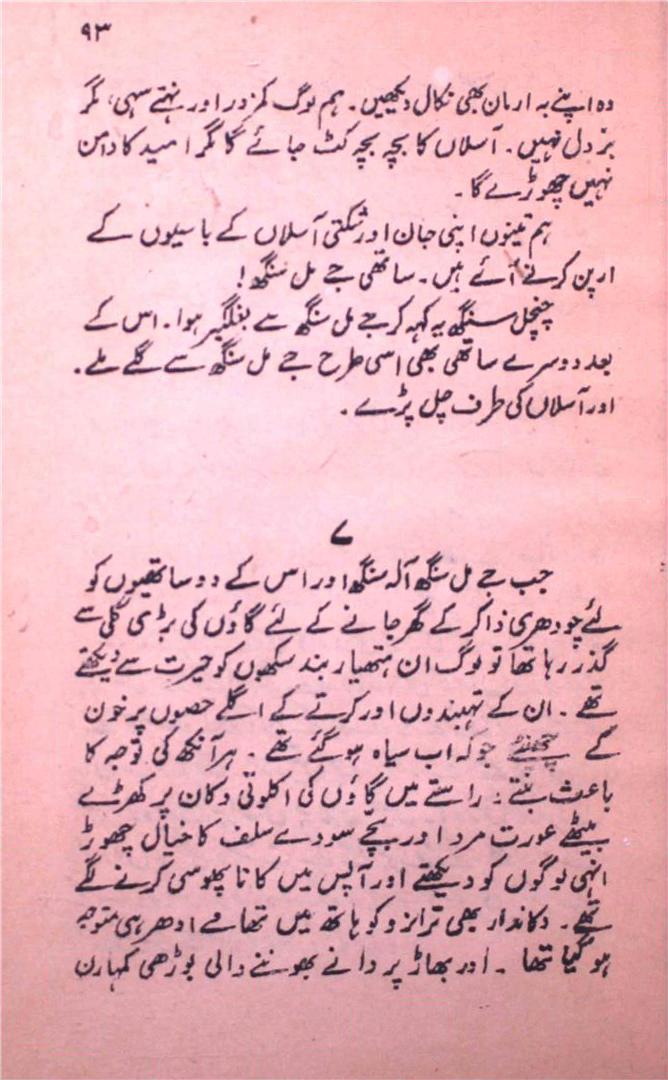 ۹۳
وہ اپنے یہ ارمان بھی نکال دیکھیں۔ ہم لوگ کمزور اور نہتے سہی، مگر
بزدل نہیں۔ آسلاں کا بچہ بچہ کٹ جائے گا مگر امید کا دامن
نہیں چھوڑے گا۔
ہم تینوں اپنی جان اور شکتی آسلاں کے باسیوں کے
ارپن کرنے آئے ہیں۔ ساتھی جے مل سنگھ!
چنچل سنگھ یہ کہہ کر جے مل سنگھ سے بغلگیر ہوا۔ اس کے
بعد دوسرے ساتھی بھی اسی طرح جے مل سنگھ سے گلے ملے۔
اور آسلاں کی طرف چل پڑے۔
۷
جب جے مل سنگھ آلہ سنگھ اور اس کے دو ساتھیوں کو
لئے چودھری ذاکر کے گھر جانے کے لئے گاؤں کی بڑی گلی سے
گذر رہا تھا تو لوگ ان ہتھیار بند سکھوں کو حیرت سے دیکھتے
تھے۔ ان کے تہبندوں اور کرتے کے اگلے حصوں پر خون
کے چھینٹے جو کہ اب سیاہ ہو گئے تھے۔ ہر آنکھ کی توجہ کا
باعث بنتے۔ راستے میں گاؤں کی اکلوتی دکان پر کھڑے
بیٹھے عورت مرد اور بچے سودے سلف کا خیال چھوڑ
انہی لوگوں کو دیکھتے اور آپس میں کانا پھوسی کرنے لگے
تھے۔ دکاندار بھی ترازو کو ہاتھ میں تھامے ادھر ہی متوجہ
ہو گیا تھا۔ اور بھاڑ پر دانے بھوننے والی بوڑھی کمہارن